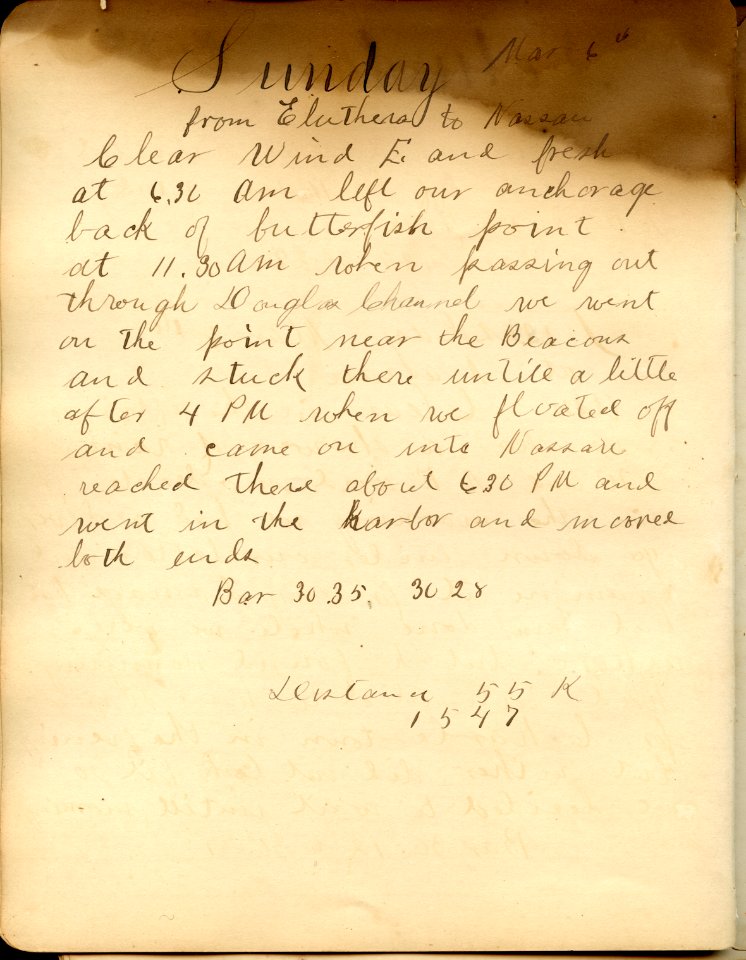 Sunday Mar 6th
from Eluthera to Nassau
Clear Wind E. and fresh
at 6.30 am left our anchorage
back of butterfish point
at 11.30 AM when passing out
through Douglas Channel we went
on the point near the Beacons
and stuck there untill a little
after 4 PM when we floated off
and came on into Nassau
reached there about 6 30 PM and
went in the harbor and moored
both ends
Bar 30.35, 30 28
Distance 55 K
1547